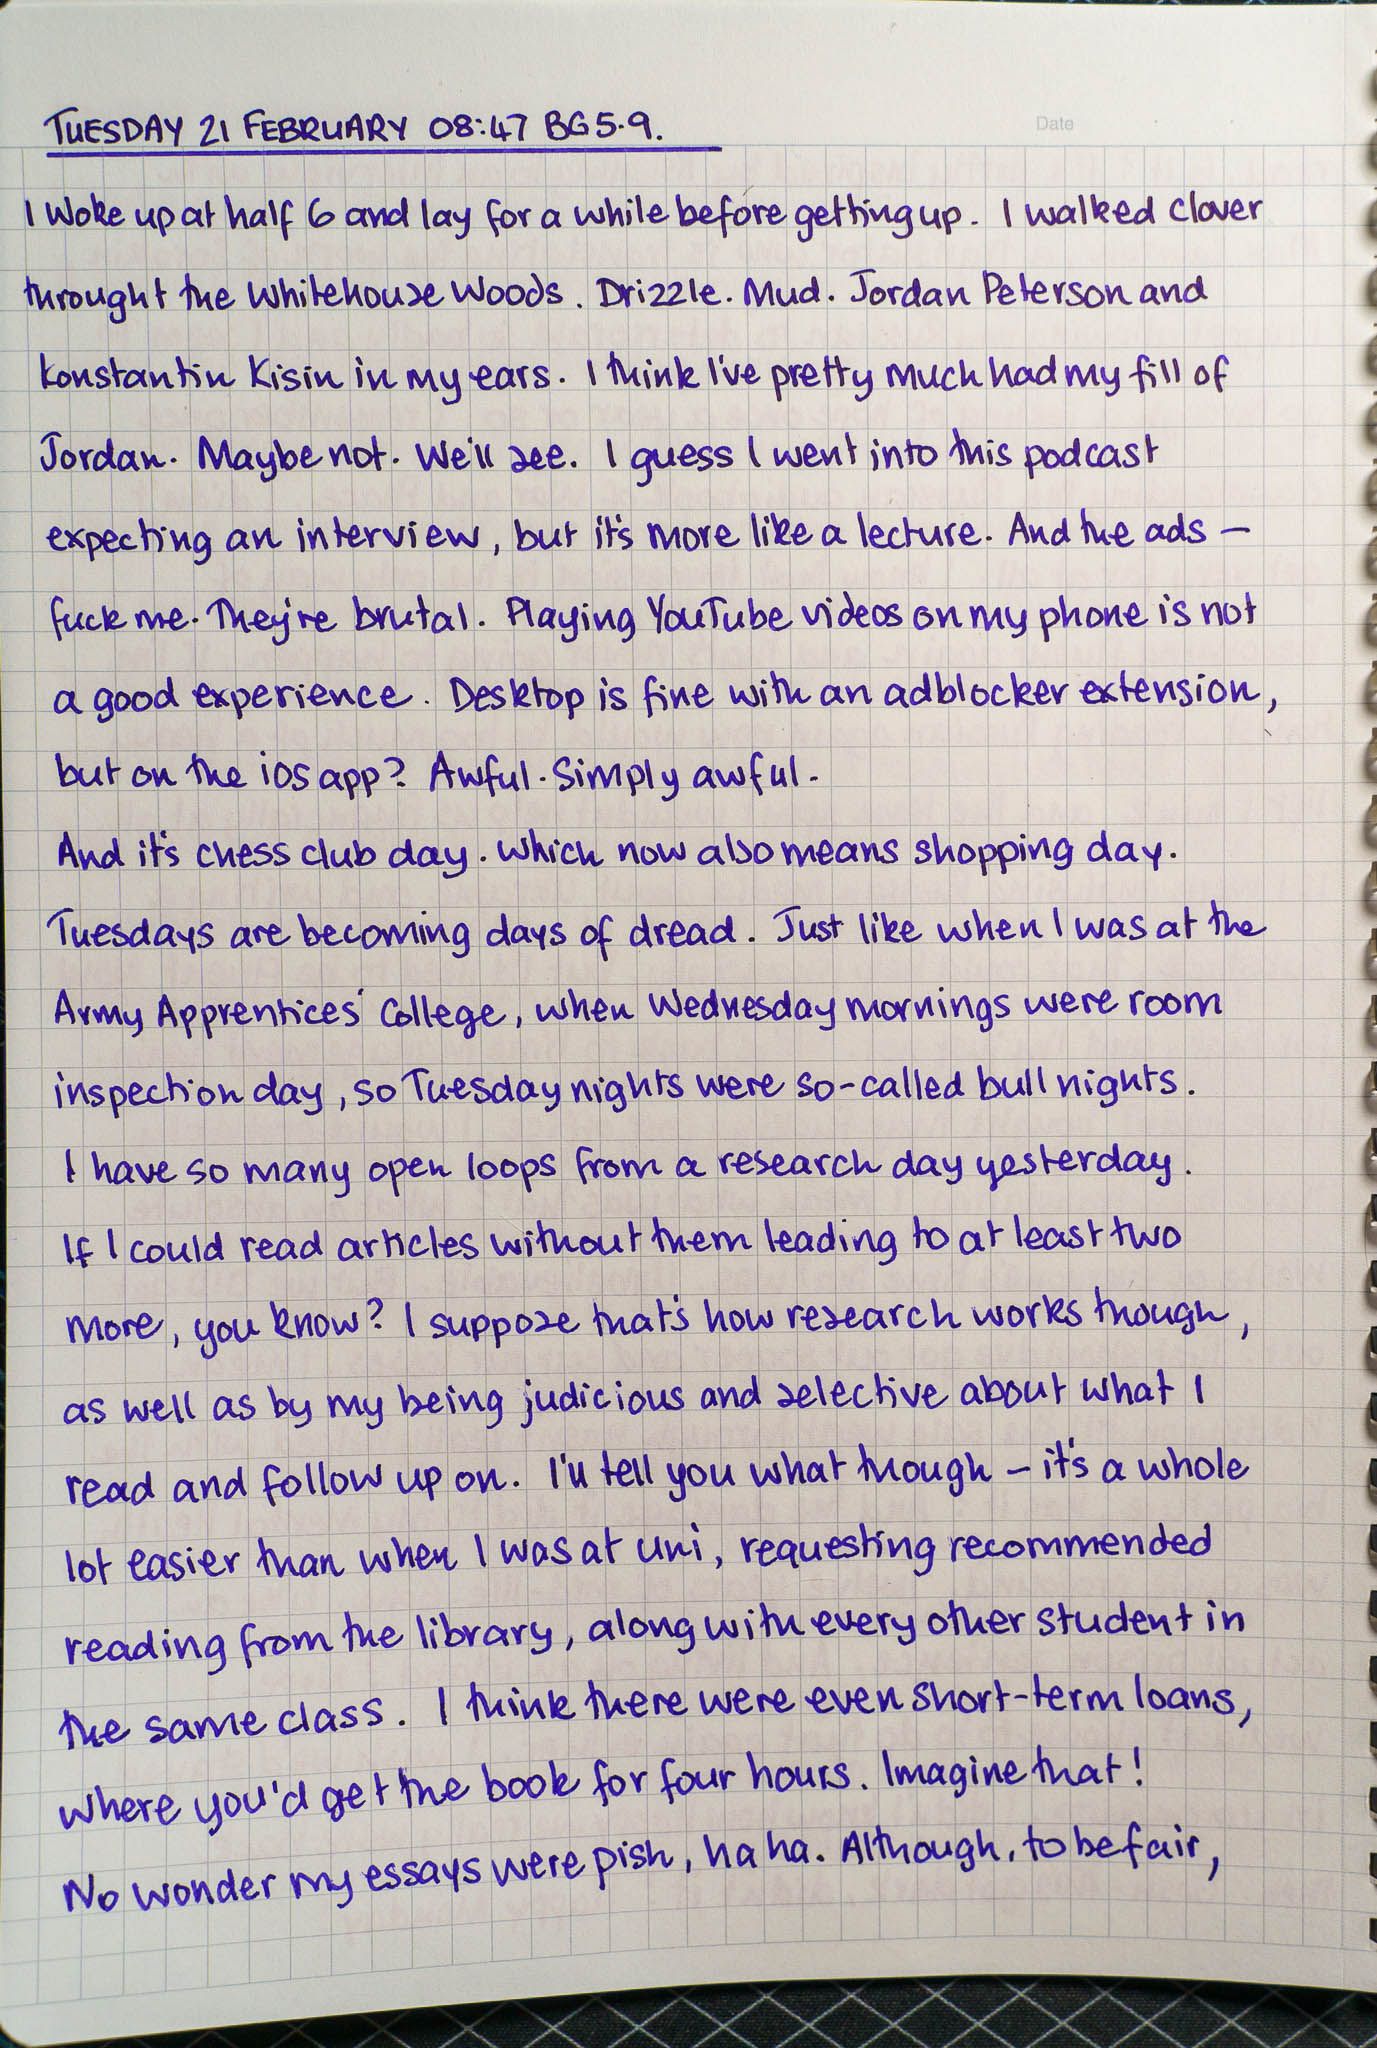 TUESDAY 21 FEBRUARY 08:47 BG 5.9.
Date
I woke up at half 6 and lay for a while before getting up. I walked Clover
throught the Whitehouse Woods. Drizzle. Mud. Jordan Peterson and
Konstantin Kisin in my ears. I think I've pretty much had my fill of
Jordan. Maybe not. We'll see. I guess I went into this podcast
expecting an interview, but it's more like a lecture. And the ads –
fuck me. They're brutal. Playing YouTube videos on my phone is not
a good experience. Desktop is fine with an adblocker extension,
but on the iOS app? Awful. Simply awful.
And it's chess club day. Which now also means shopping day.
Tuesdays are becoming days of dread. Just like when I was at the
Army Apprentices' College, when Wednesday mornings were room
inspection day, so Tuesday nights were so-called bull nights.
I have so many open loops from a research day yesterday.
If I could read articles without them leading to at least two
more, you know? I suppose that's how research works though,
as well as by my being judicious and selective about what I
read and follow up on. I'll tell you what though – it's a whole
lot easier than when I was at uni, requesting recommended
reading from the library, along with every other student in
the same class. I think there were even short-term loans,
where you'd get the book for four hours. Imagine that!
No wonder my essays were pish, ha ha. Although, to be fair,